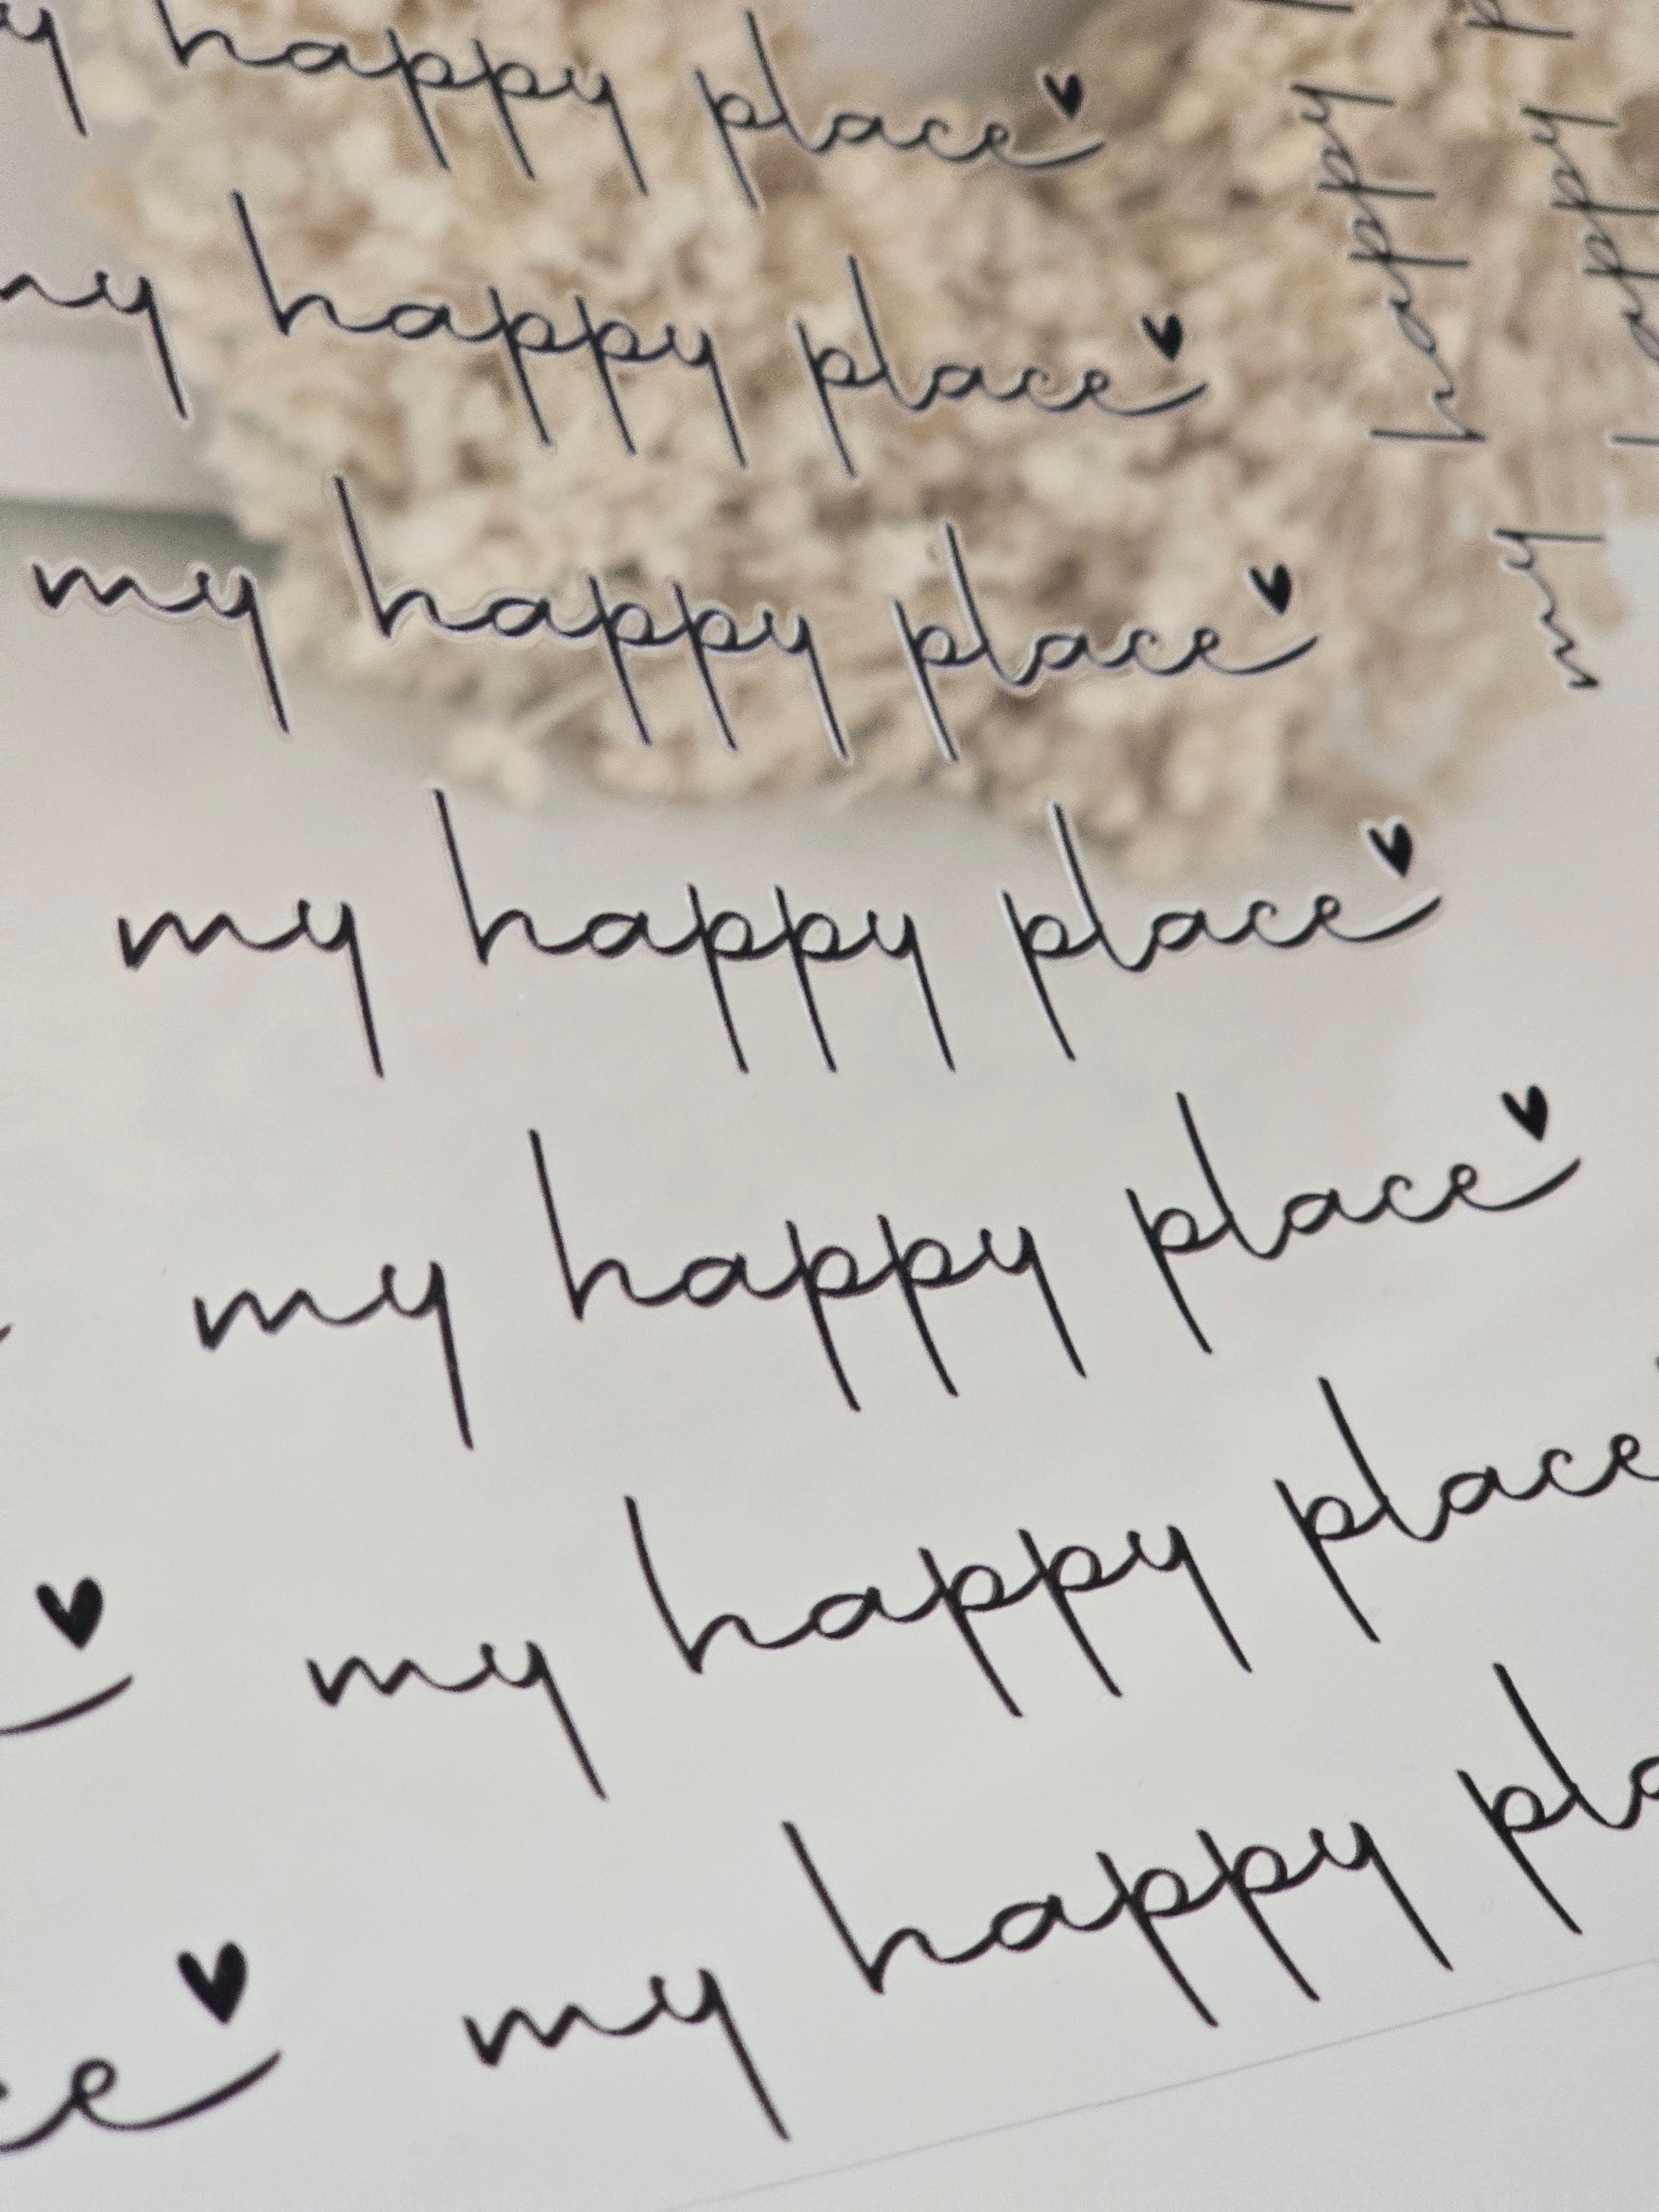 y happy place
my happy place
my happy place
my happy place
my happy place
my happy place
ce my happy pla
my happy
happy